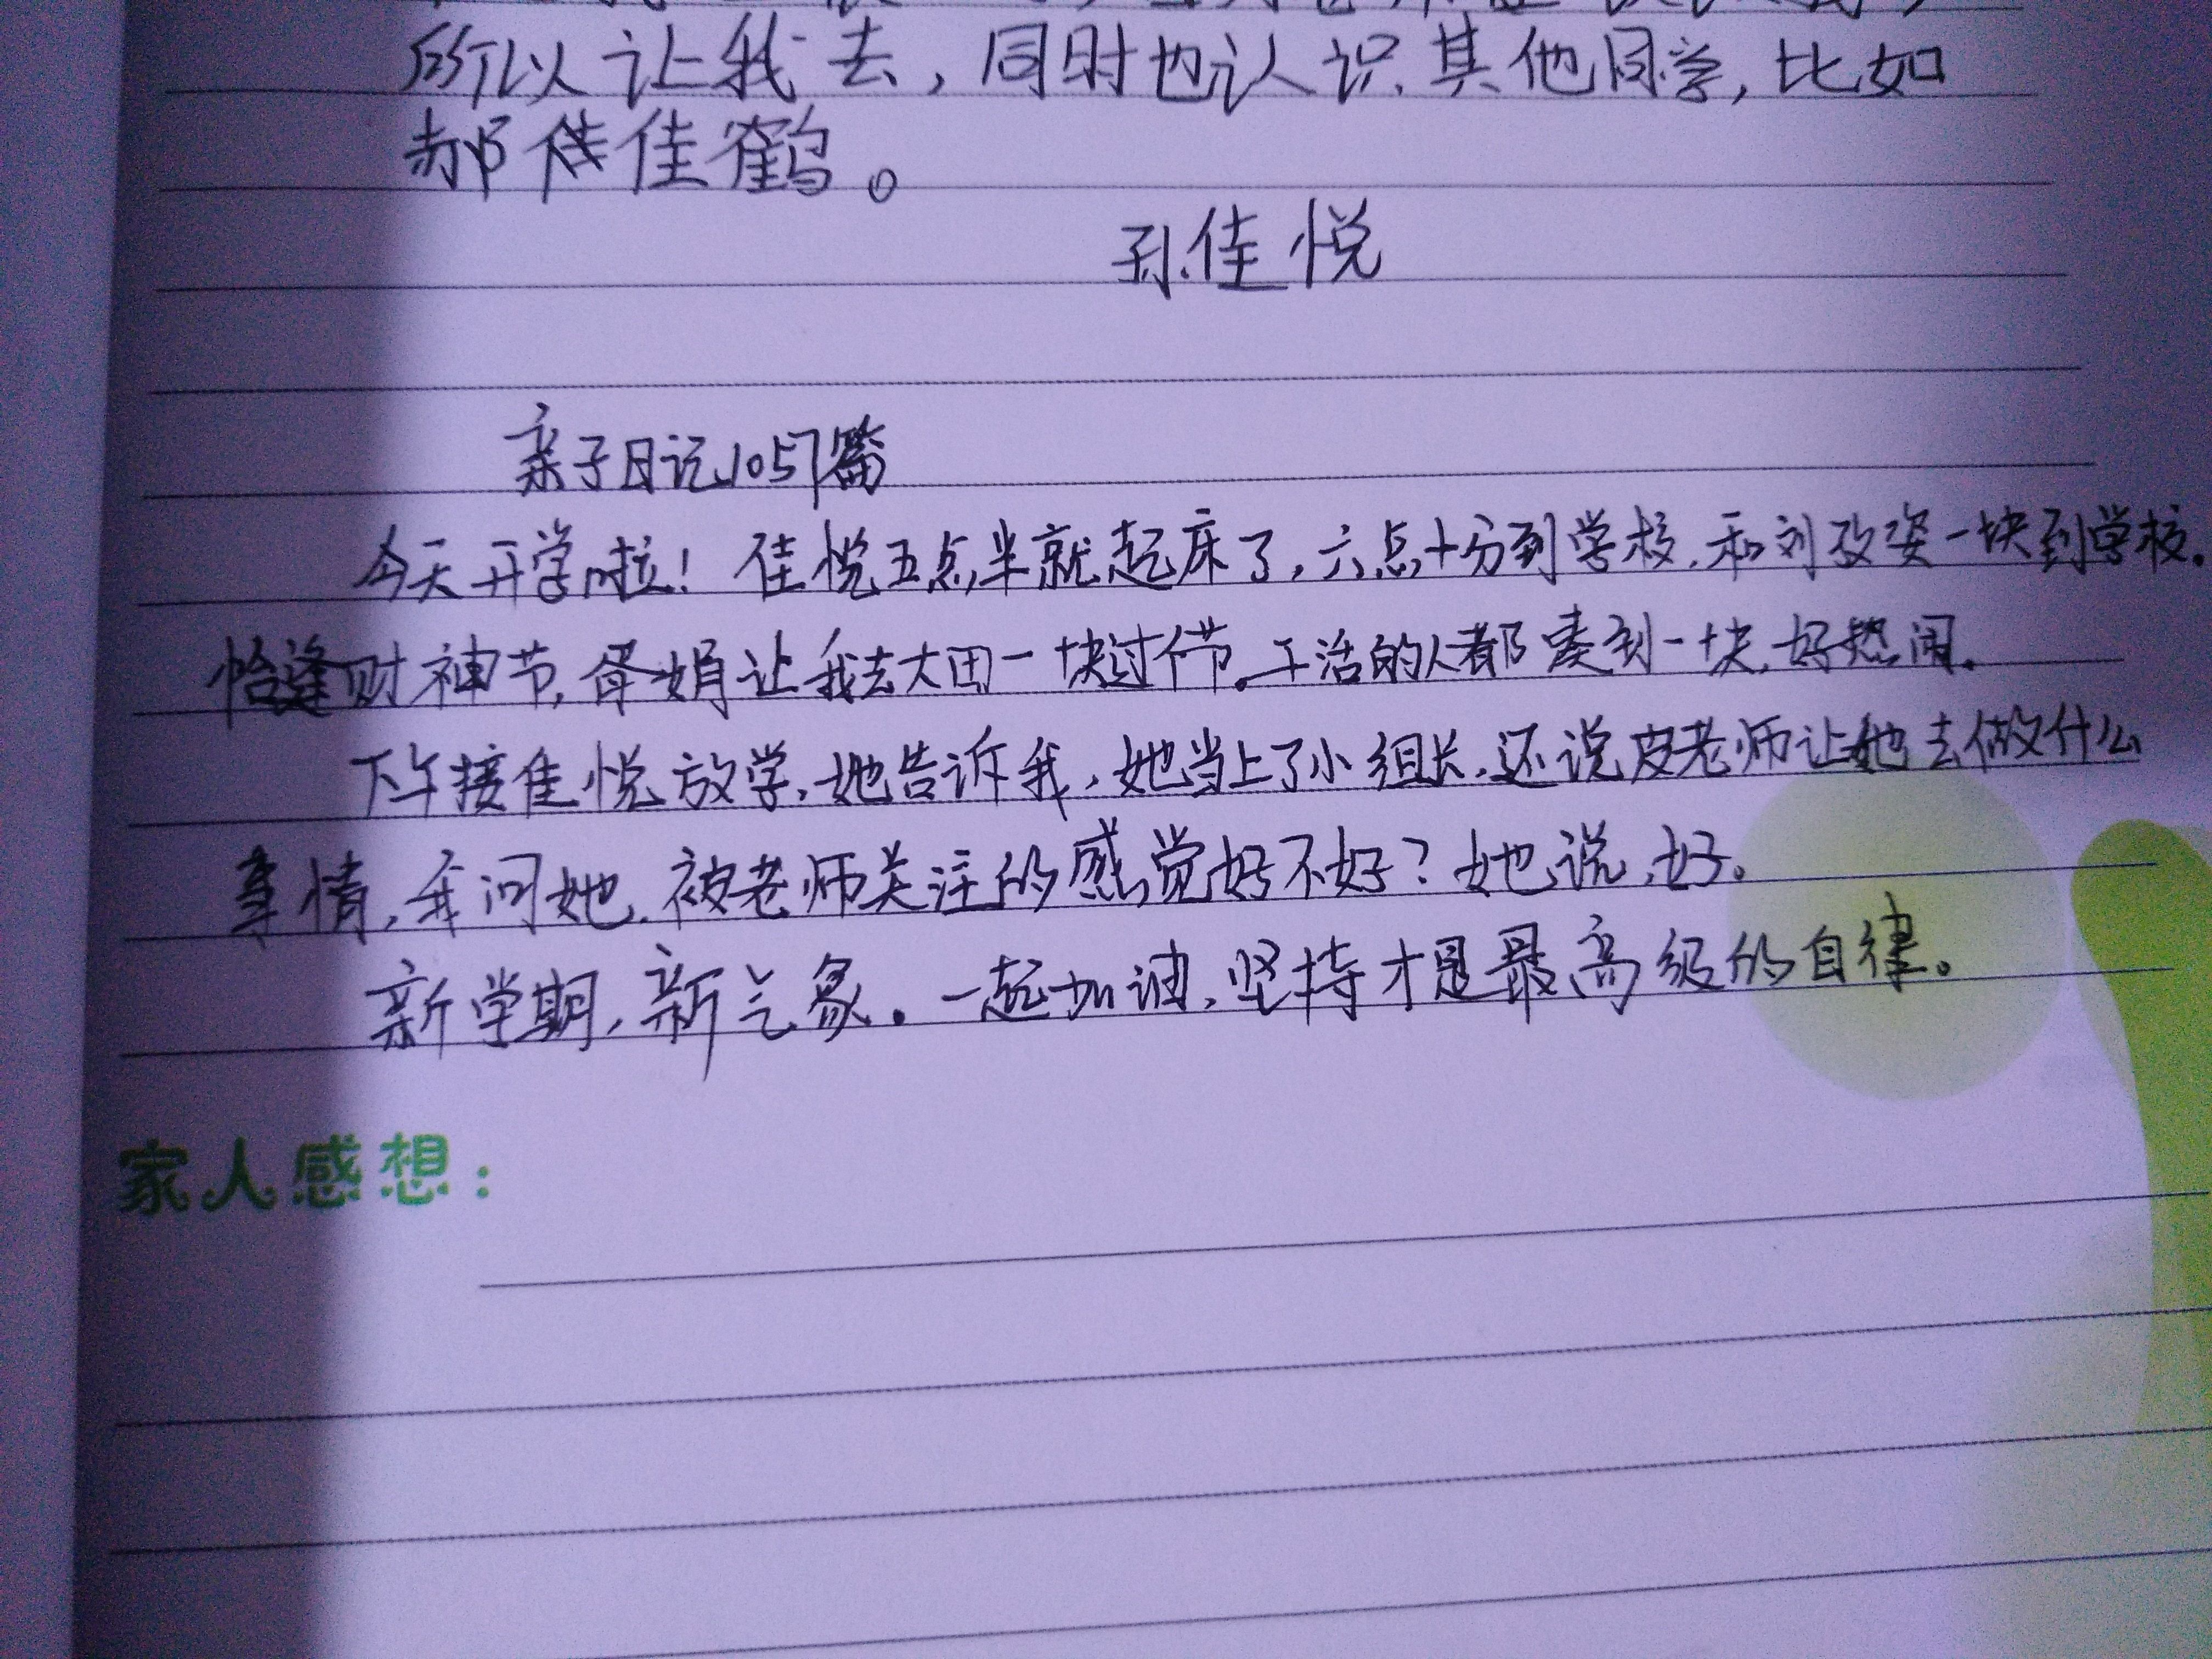 所以让我去，同时也认识其他同学，比如
郝佳鹤。
孙佳悦
亲子日记1057篇
今天开学啦！佳悦五点半就起床了，六点十分到学校，和刘孜姿一块到学校。
恰逢财神节，娟让我去大田一块过个节。干活的人都凑到一块，好热闹。
下午接佳悦放学，她告诉我，她当上了小组长，还说皮老师让她去做什么
事情，我问她，被老师关注的感觉好不好？她说，好。
新学期，新气象。一起加油，坚持才是最高级的自律。
家人感想：